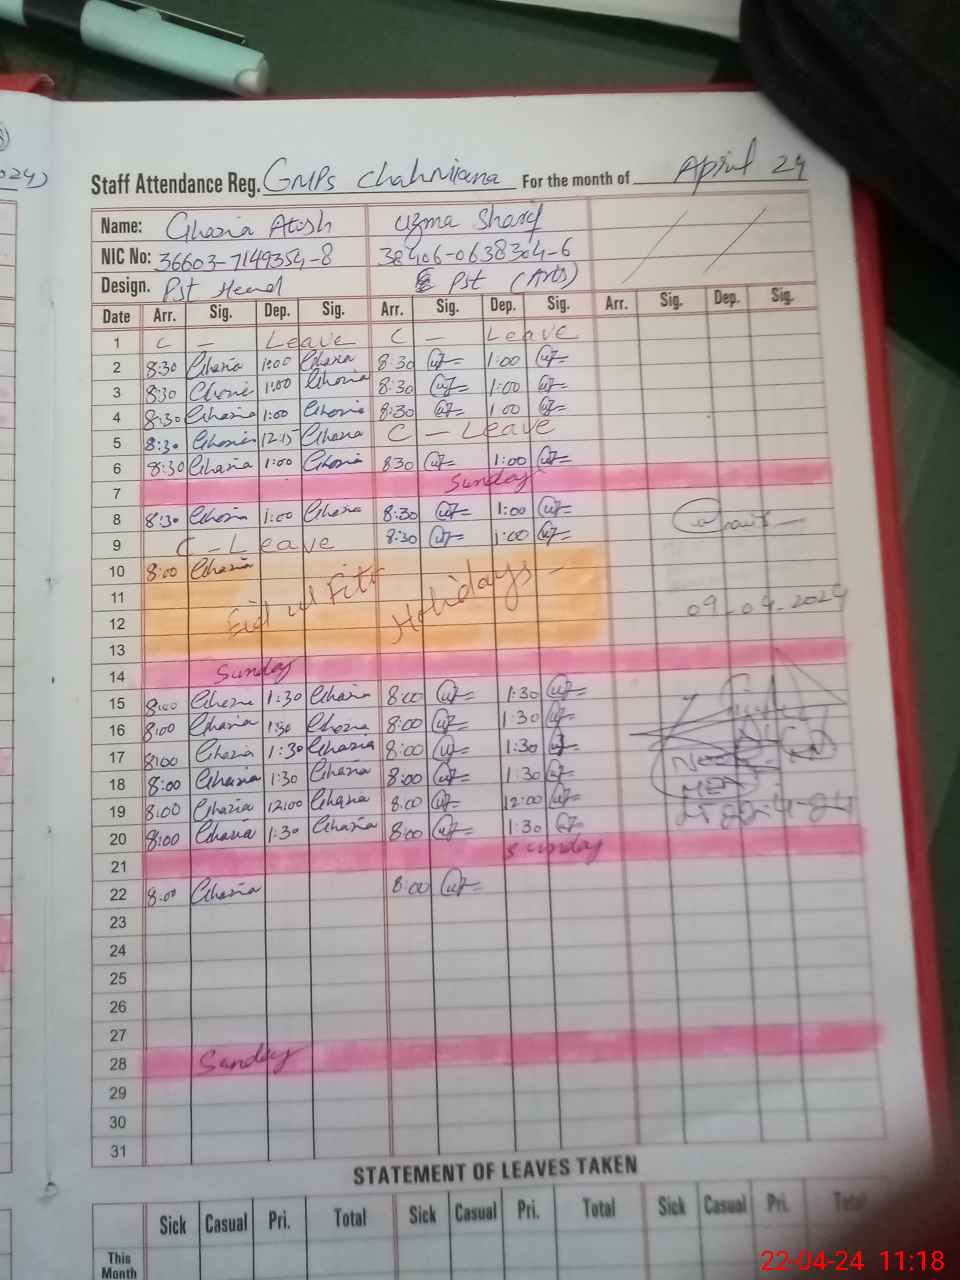 024)
Staff Attendance Reg. GMPS Chahmiana For the month of April 24
Name: Ghazia Atish Uzma Sharif
NIC No: 36603-7149354-8 38406-0638304-6
Design. Pst Head Pst (Arts)
Date Arr. Sig. Dep. Sig. Arr. Sig. Dep. Sig. Arr. Sig. Dep. Sig.
1 C - Leave C - Leave
2 8:30 Ghazia 1:00 Ghazia 8:30 1:00
3 8:30 Ghazia 1:00 Ghazia 8:30 1:00
4 8:30 Ghazia 1:00 Ghazia 8:30 1:00
5 8:30 Ghazia 12:15 Ghazia C - Leave
6 8:30 Ghazia 1:00 Ghazia 8:30 1:00
7 Sunday
8 8:30 Ghazia 1:00 Ghazia 8:30 1:00
9 C - Leave 8:30 1:00
10 8:00 Ghazia
11 Eid ul Fitr Holidays -
12 09-04-2024
13
14 Sunday
15 8:00 Ghazia 1:30 Ghazia 8:00 1:30
16 8:00 Ghazia 1:30 Ghazia 8:00 1:30
17 8:00 Ghazia 1:30 Ghazia 8:00 1:30
18 8:00 Ghazia 1:30 Ghazia 8:00 1:30
19 8:00 Ghazia 12:00 Ghazia 8:00 12:00
20 8:00 Ghazia 1:30 Ghazia 8:00 1:30
21 Sunday
22 8:00 Ghazia 8:00
23
24
25
26
27
28 Sunday
29
30
31
STATEMENT OF LEAVES TAKEN
Sick Casual Pri. Total Sick Casual Pri. Total Sick Casual Pri. Total
This
Month
22-04-24 11:18